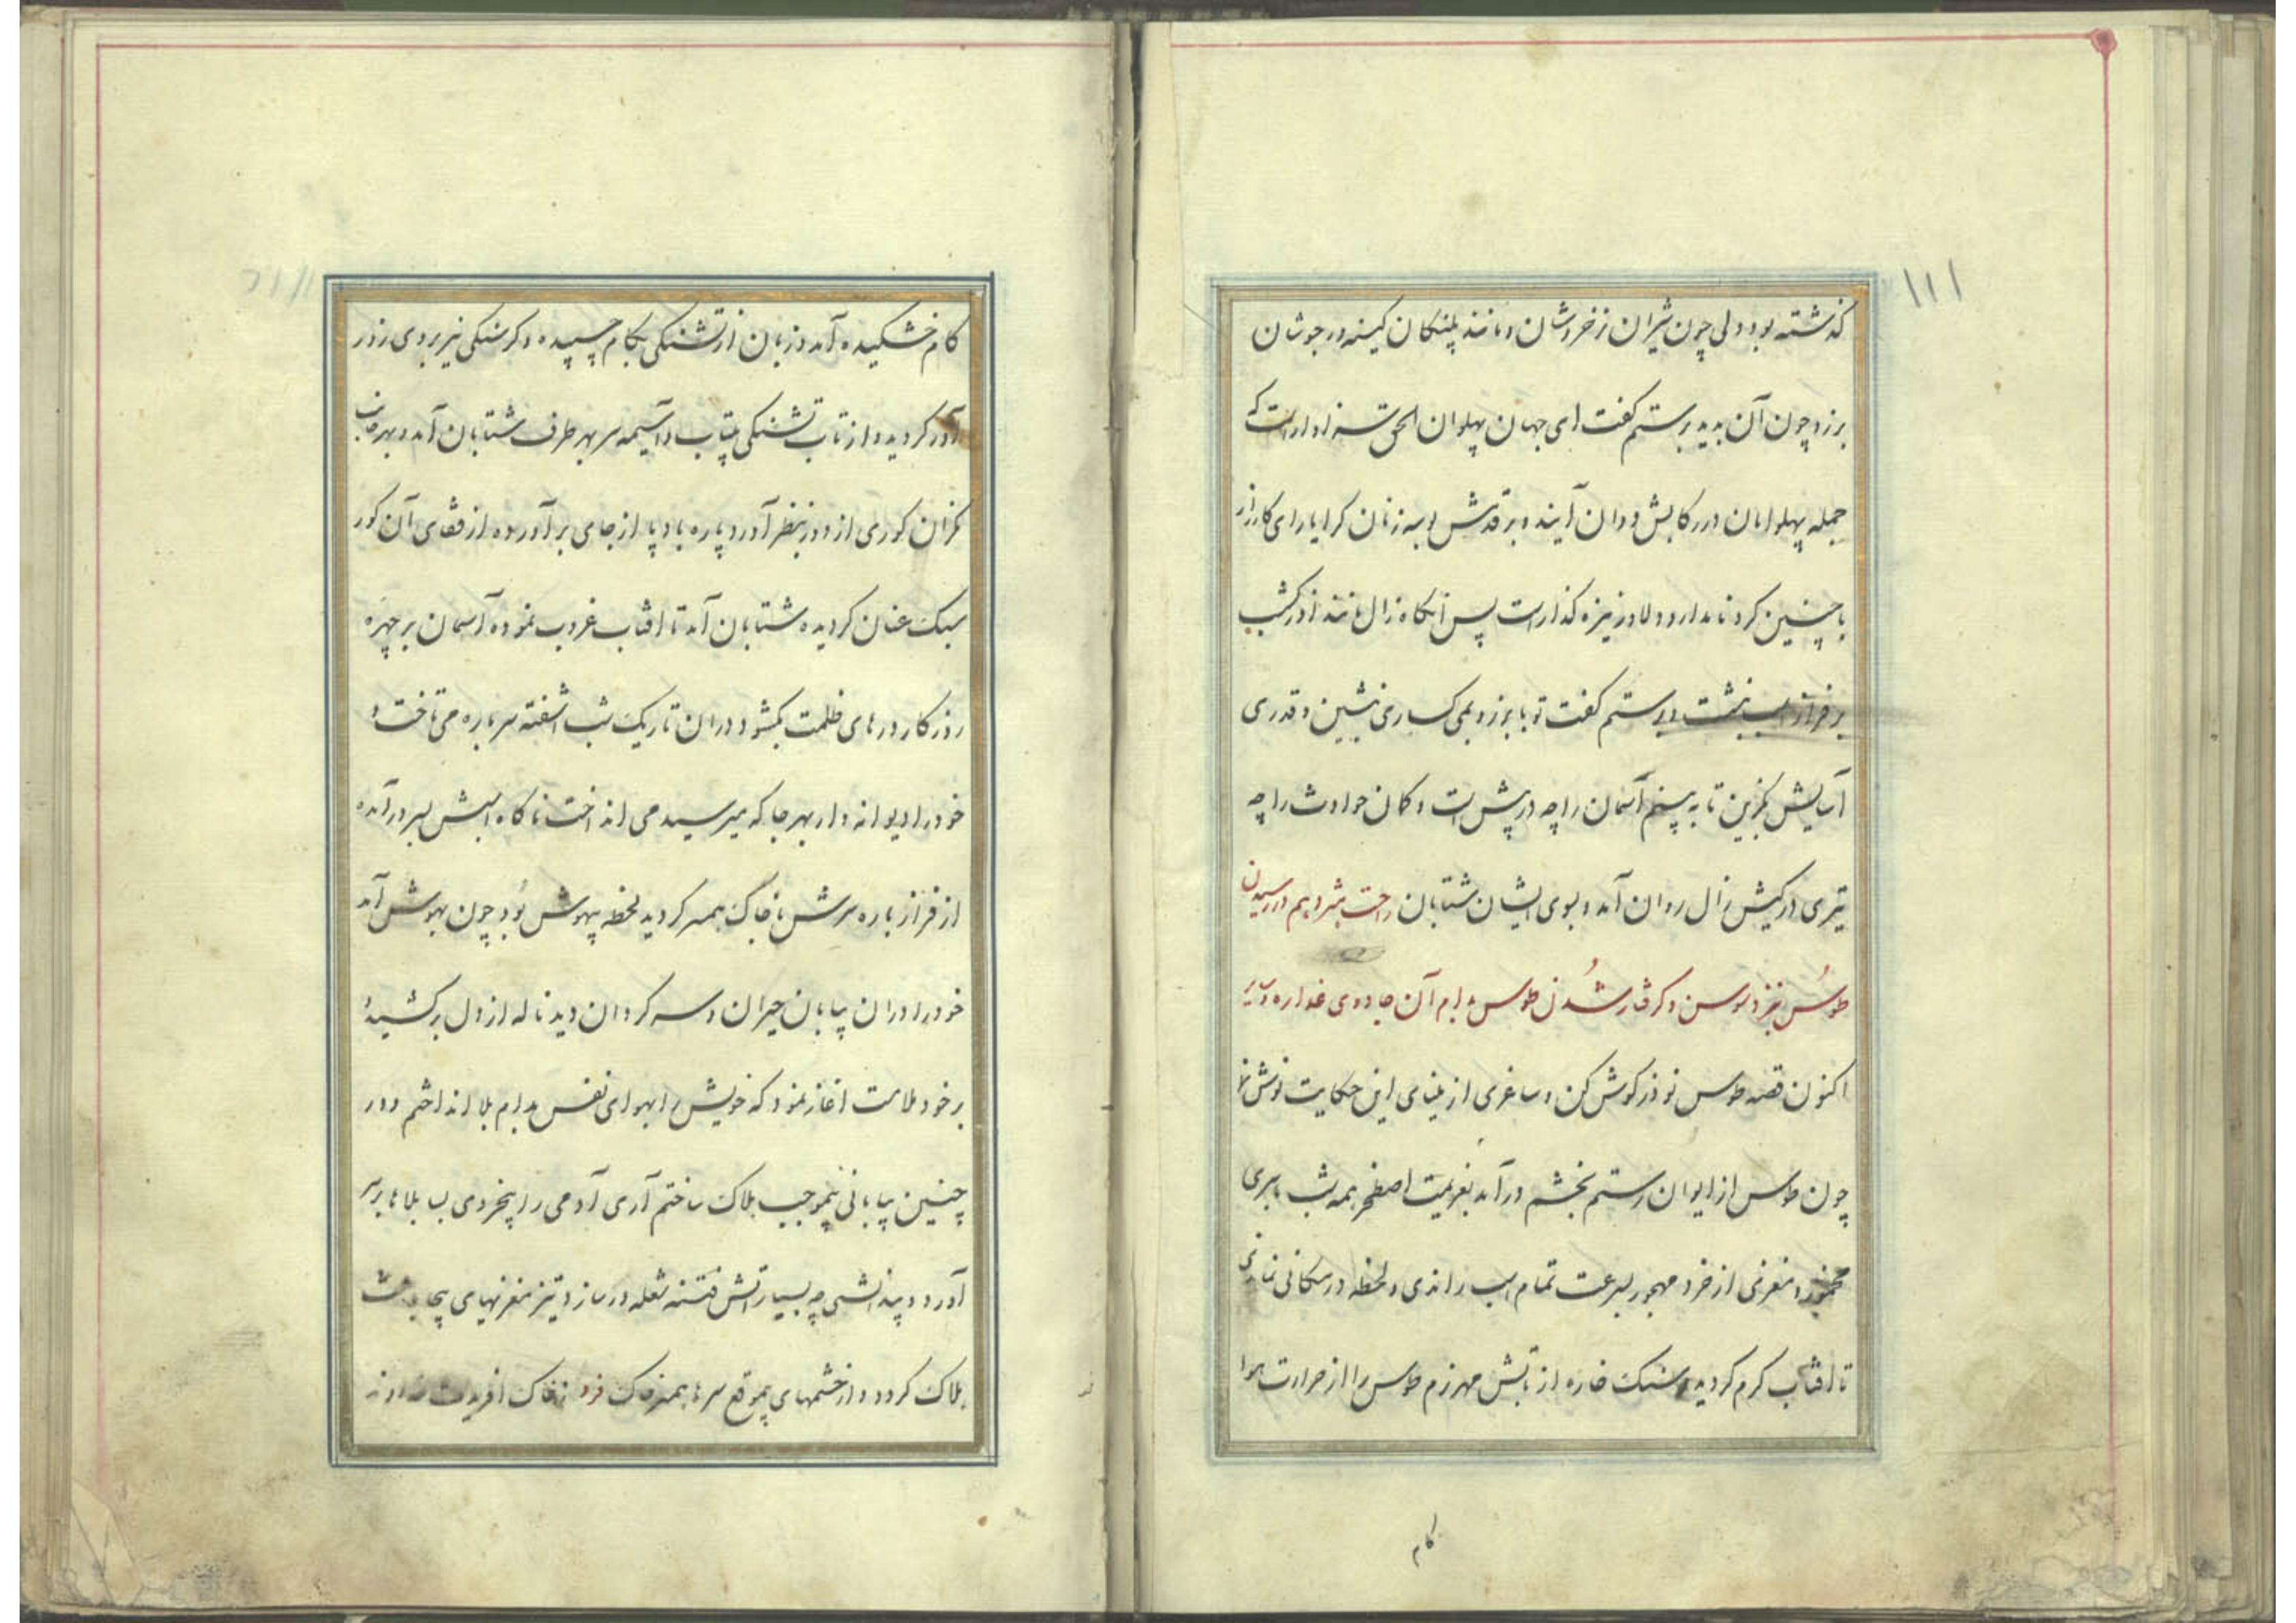 ۱۱۱
گذشته بود ولی چون شیران زخروشان و مانند پلنکان کینه ور جوشان
برزو چون آن بدید برستم کفت ای جهان پهلوان الحق سزاوار است که
جمله پهلوانان در رکابش دوان آیند و بر قدمش بوسه زنان کرا یارای کارزار
با چنین کرد نامدار و دلاور نیزه گذار است پس انکاه زال مانند اذرکشب
بر فراز اسب بنشست و برستم کفت تو با برزو بمی کساری بنشین و قدری
آسایش کزین تا به بینم آسمان را چه در پیش است و کمان حوادث را چه
تیری در کیش زال روان آمد و بسوی ایشان شتابان راحت شردهم در رسیدن
طوس بنزد سوسن و کرفتار شدن طوس بدام آن جادوی غداره
اکنون قصه طوس نوذر کوش کن و ساغری از مینای این حکایت نوش نما
چون طوس از ایوان رستم بخشم در آمد بعزیمت اصطخر همه شب با سری
مخمور و مغزی از خرد مهجور بسرعت تمام اسب راندی و لحظه در مکانی نماندی
تا افتاب کرم کردید و سنک خاره از تابش مهر نرم طوس را از حرارت هوا
کام
کام خشکیده آمد و زبان از تشنکی بکام چسپیده و کرسنکی نیز بر وی زور
آور کردید و از تاب تشنکی بیتاب و آسیمه سر بهر طرف شتابان آمد و بهر جانب
نکران کوری از دور بنظر آورد باره باد پا از جای بر آورده از قفای آن کور
سبک عنان کردیده شتابان آمد تا افتاب غروب نموده آسمان بر چهره
روزکار درهای ظلمت بکشود در ان تاریک شب اشفته سر باره می تاخت و
خود را دیوانه وار بهر جا که میرسید می انداخت ناکاه اسبش بسر در آمده
از فراز باره سرش با خاک همسر کردید لحظه بیهوش بود چون بهوش آمد
خود را در ان بیابان حیران و سر کردان دید ناله از دل بر کشیده
بر خود ملامت اغاز نمود که خویش را بهوای نفس بدام بلا انداختم و در
چنین بیابانی بیموجب هلاک ساختم آری آدمی را بیخردی بس بلاها بر سر
آورد و بیدانشی چه بسیار آتش فتنه شعله ور سازد و تیز مغزیهای بیجا باعث
هلاک کردد و از خشمهای بیموقع سرها همسر خاک فرد ز خاک افریدت خداوند